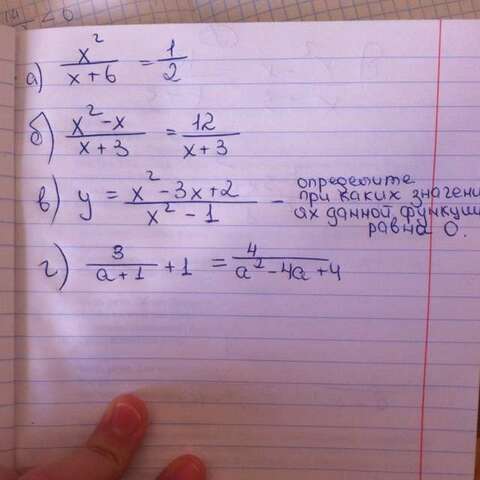 а) x²/(x+6) = 1/2
б) (x²-x)/(x+3) = 12/(x+3)
в) y = (x²-3x+2)/(x²-1) - определите
при каких значени
ях данной функци
равна 0.
г) 3/(a+1) + 1 = 4/(a²-4a+4)